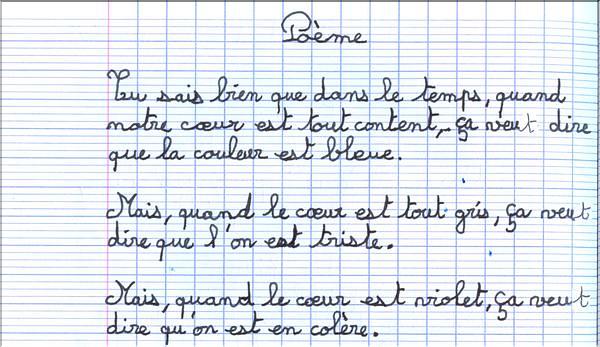 Poème
Tu sais bien que dans le temps, quand
notre cœur est tout content, ça veut dire
que la couleur est bleue.
Mais, quand le cœur est tout gris, ça veut
dire que l'on est triste.
Mais, quand le cœur est violet, ça veut
dire qu'on est en colère.